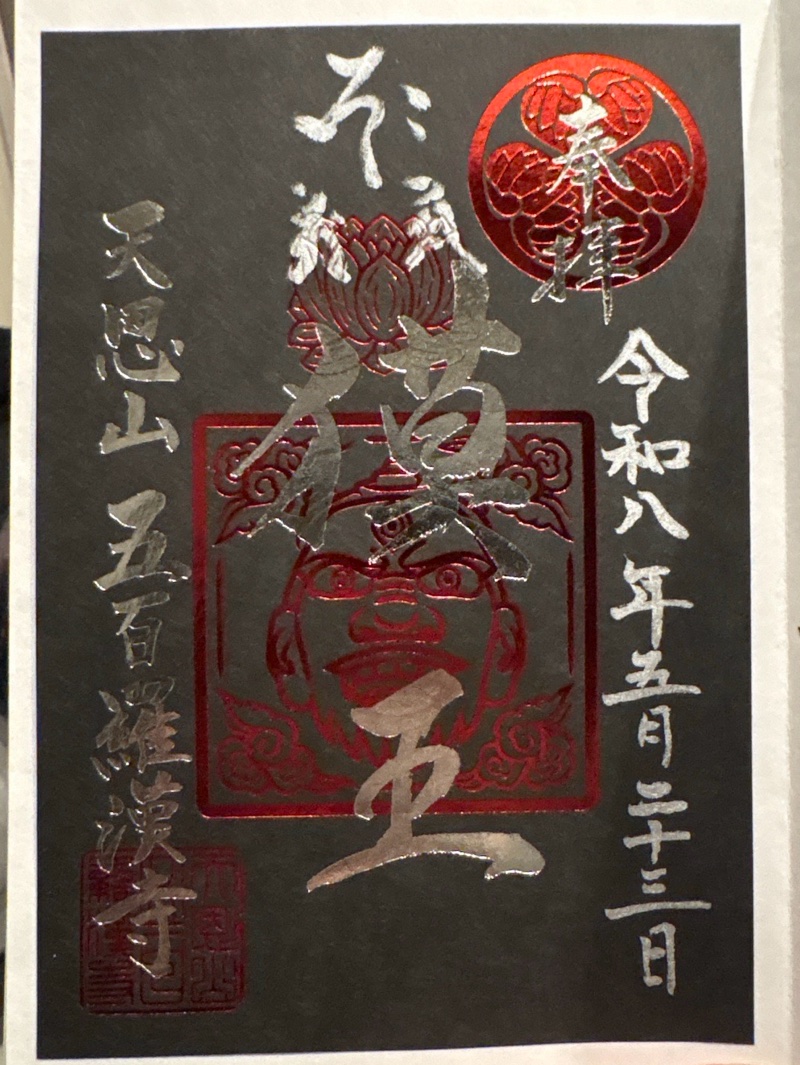 奉拝
令和八年五月二十三日
獏王
天恩山 五百羅漢寺